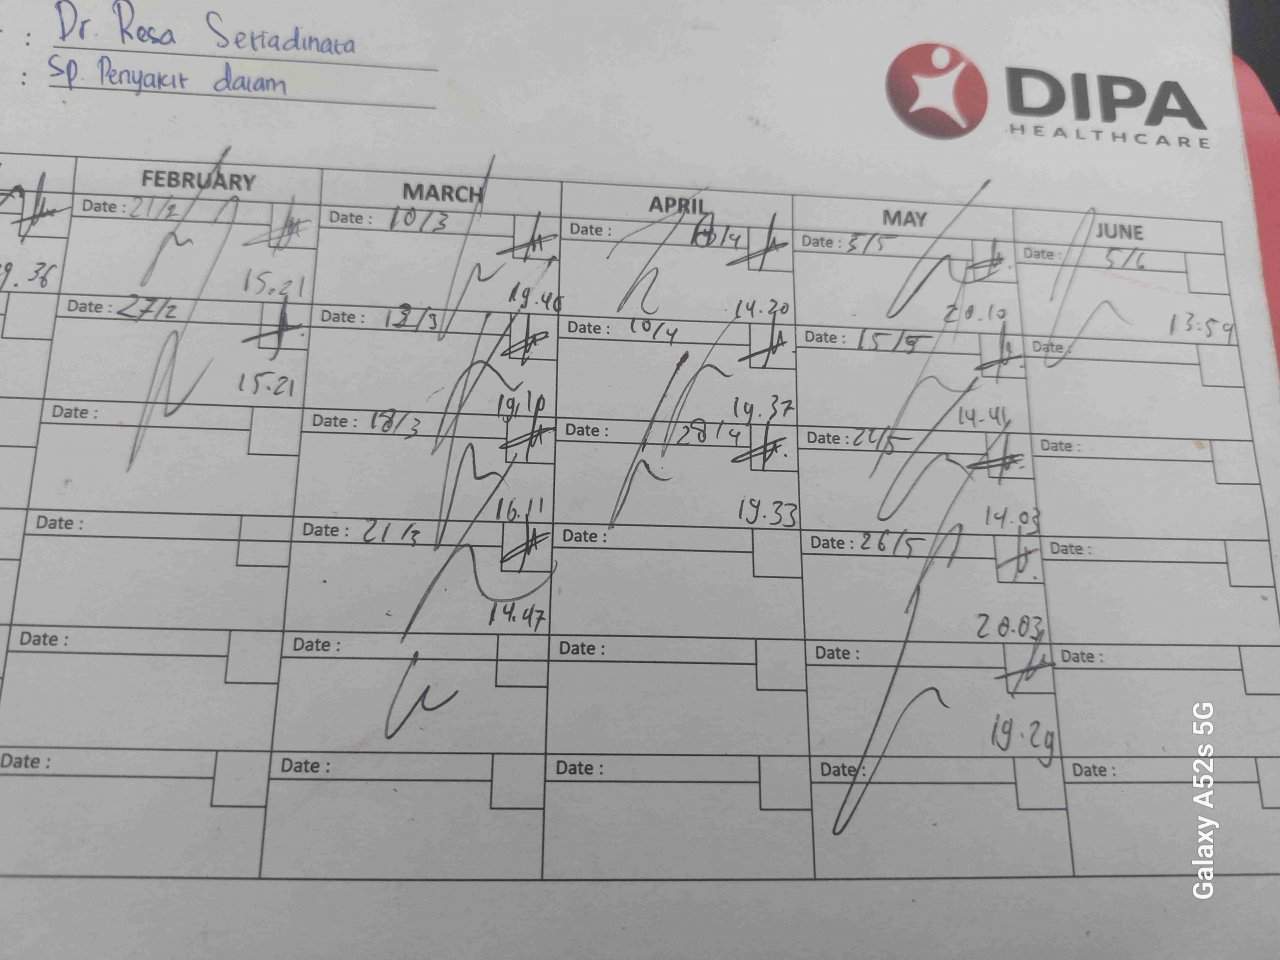 : Dr. Resa Setiadinata
: Sp. Penyakit dalam
DIPA
HEALTHCARE
FEBRUARY MARCH APRIL MAY JUNE
Date : 21/2 Date : 10/3 Date : /4 Date : 5/5 Date : 5/6
9.36 15.21 19.46 14.20 20.10 13:59
Date : 27/2 Date : /3 Date : 10/4 Date : 15/5 Date :
15.21 19.10 19.37 14.41
Date : Date : 18/3 Date : 28/4 Date : /5 Date :
16.11 19.33 14.03
Date : Date : 21/3 Date : Date : 26/5 Date :
14.47 20.03
Date : Date : Date : Date : Date :
19.29
Date : Date : Date : Date : Date :
Galaxy A52s 5G